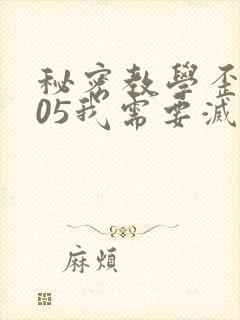 秘密教學歪
05我需要滅
麻煩